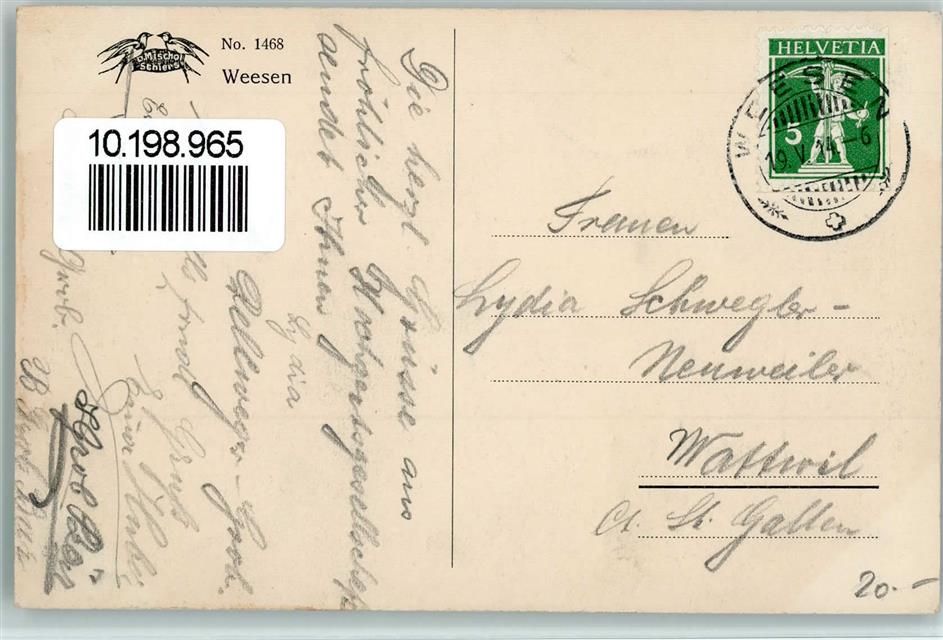 D. Mischol
Schiers
No. 1468
Weesen
10.198.965
HELVETIA
5
WEESEN
19.V.14.-6
Die herzl. Grüsse aus
fröhlicher Hochzeitsgesellschaft
sendet Ihnen
Lydia
Zellweger-Grob.
Gruß
Grob.
Frauen
Lydia Schwegler-
Neuweiler
Wattwil
Ct. St. Gallen
20.-